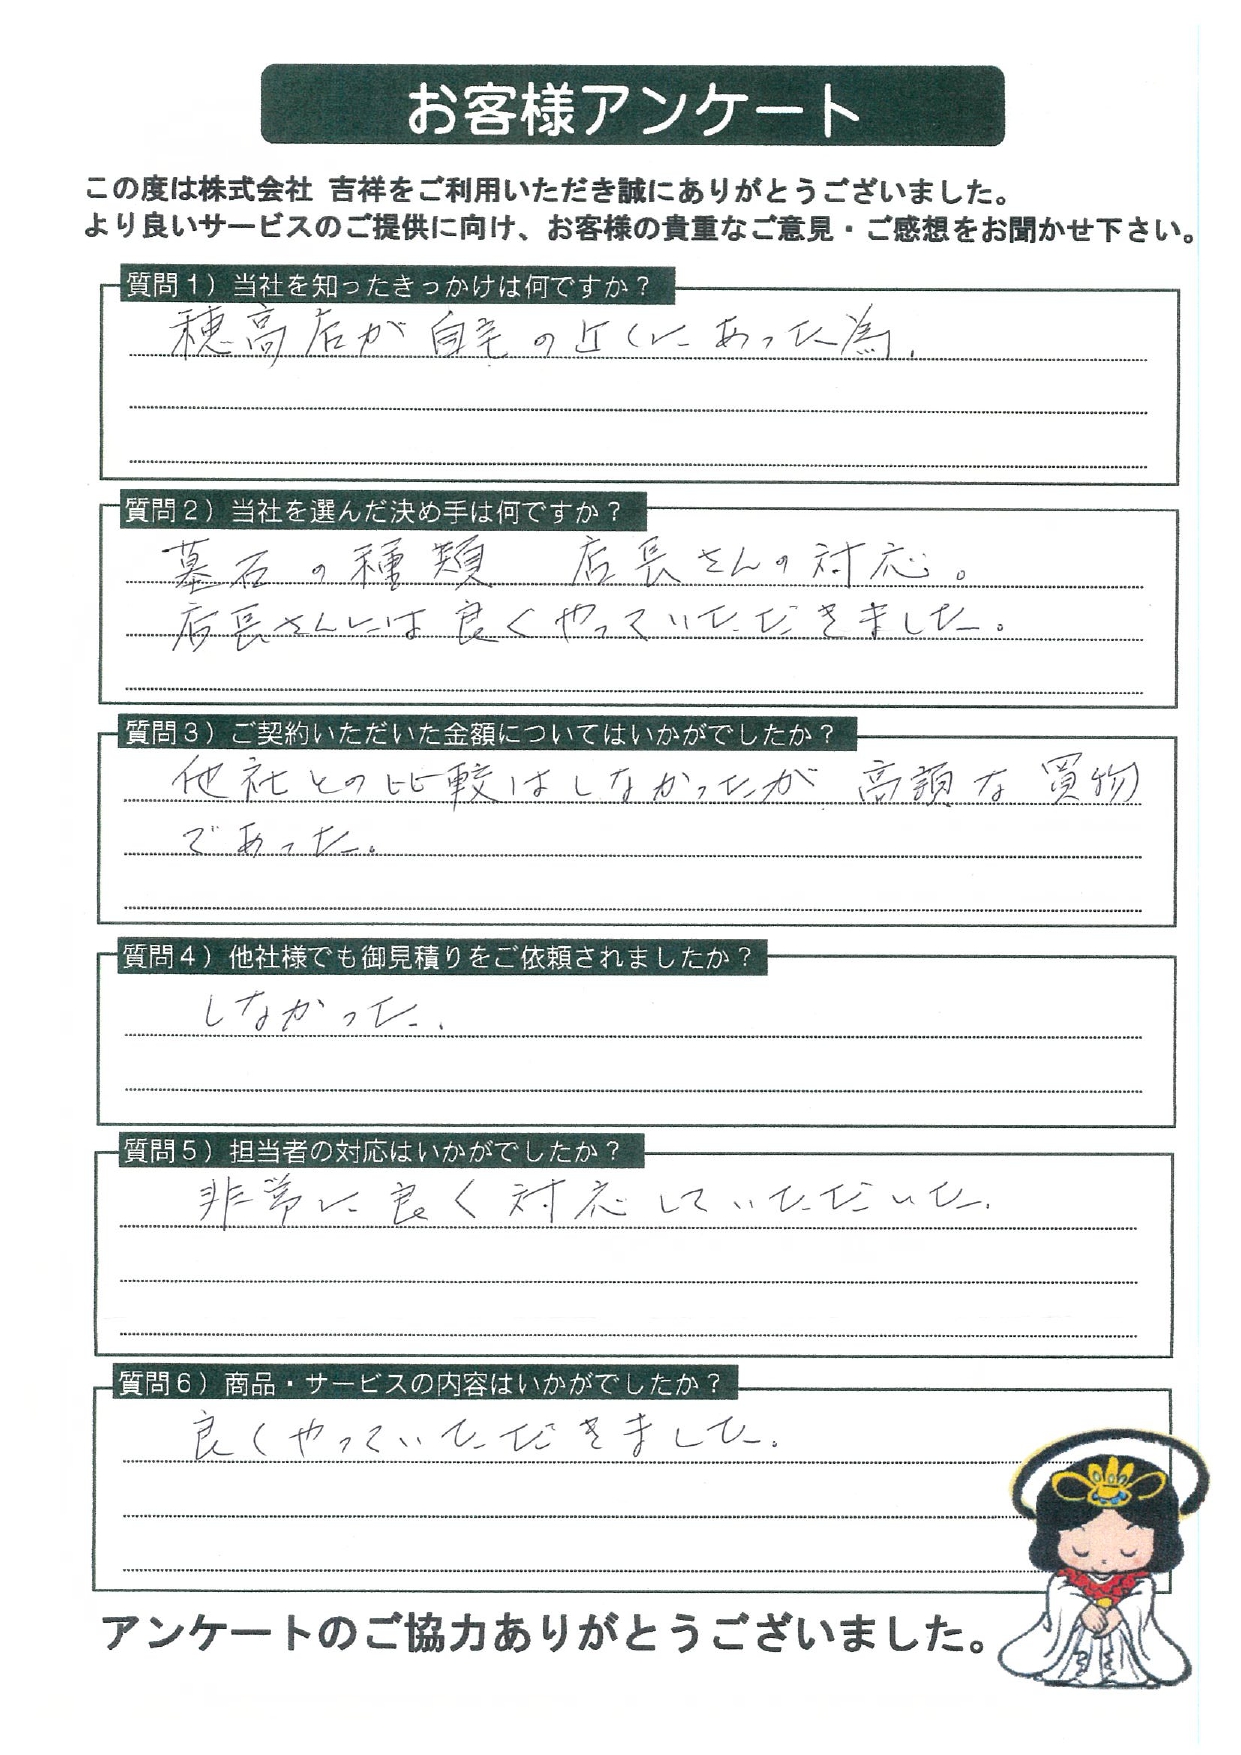 お客様アンケート
この度は株式会社 吉祥をご利用いただき誠にありがとうございました。
より良いサービスのご提供に向け、お客様の貴重なご意見・ご感想をお聞かせ下さい。
質問1）当社を知ったきっかけは何ですか？
穂高店が自宅の近くにあった為.
質問2）当社を選んだ決め手は何ですか？
墓石の種類　店長さんの対応。
店長さんには良くやっていただきました。
質問3）ご契約いただいた金額についてはいかがでしたか？
他社との比較はしなかったが 高額な買物
であった。
質問4）他社様でも御見積りをご依頼されましたか？
しなかった.
質問5）担当者の対応はいかがでしたか？
非常に良く対応していただいた.
質問6）商品・サービスの内容はいかがでしたか？
良くやっていただきました.
アンケートのご協力ありがとうございました。